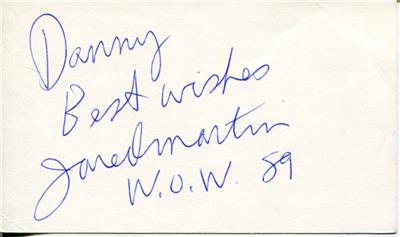 Danny
Best wishes
Jared Martin
W.O.W. 89